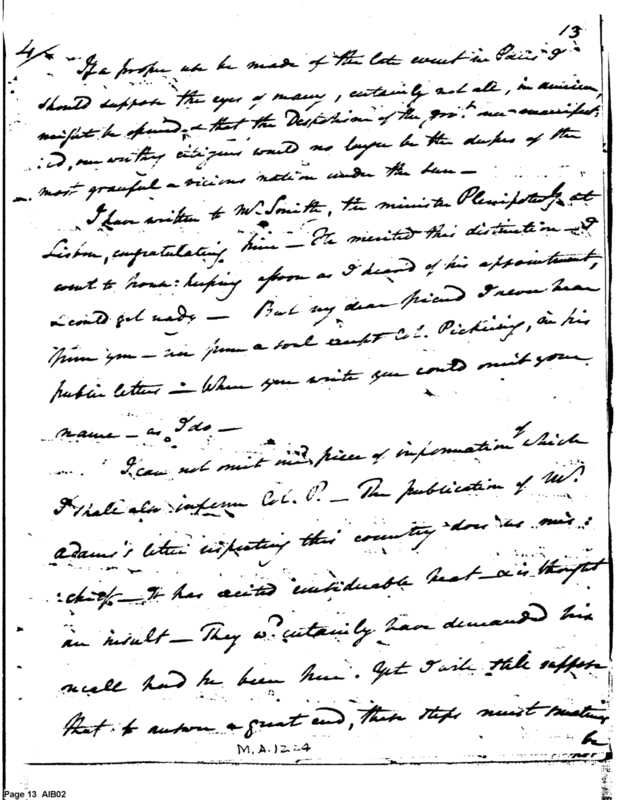 13
4/
If a proper use be made of the late event in Paris I
should suppose the eyes of many, certainly not all, in america,
might be opened, & that the Despotism of the Gov.t now manifest:
:ed, our worthy citizens would no longer be the dupes of the
most graceful & vicious nation under the Sun –
I have written to Mr. Smith, the minister Plenipotey at
Lisbon, congratulating him – He merited this distinction – I
went to house: keeping assoon as I heard of his appointment,
& could get ready – But my dear friend I never hear
from you – nor from a soul except Col. Pickering, in his
public letters – When you write you could omit your
name – as I do –
I can not omit one piece of information of which
I shall also inform Col. P. – The publication of Mr.
Adams's letter respecting this country does us mis:
:chief – It has excited considerable heat – & is thought
an insult – They wd. certainly have demanded his
recall had he been here. Yet I will still suppose
that to answer a great end, these steps must
be
not
M.A.12-4
Page 13 AIB02